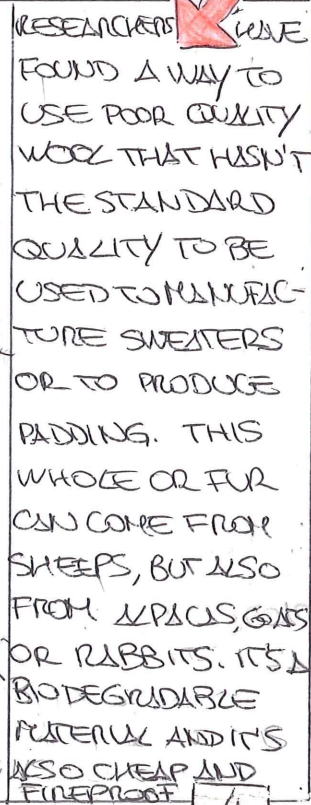 RESEARCHERS HAVE
FOUND A WAY TO
USE POOR QUALITY
WOOL THAT HASN'T
THE STANDARD
QUALITY TO BE
USED TO MANUFAC-
TURE SWEATERS
OR TO PRODUCE
PADDING. THIS
WHOLE OR FUR
CAN COME FROM
SHEEPS, BUT ALSO
FROM ALPACAS, GOATS
OR RABBITS. IT'S A
BIODEGRADABLE
MATERIAL AND IT'S
ALSO CHEAP AND
FIREPROOF